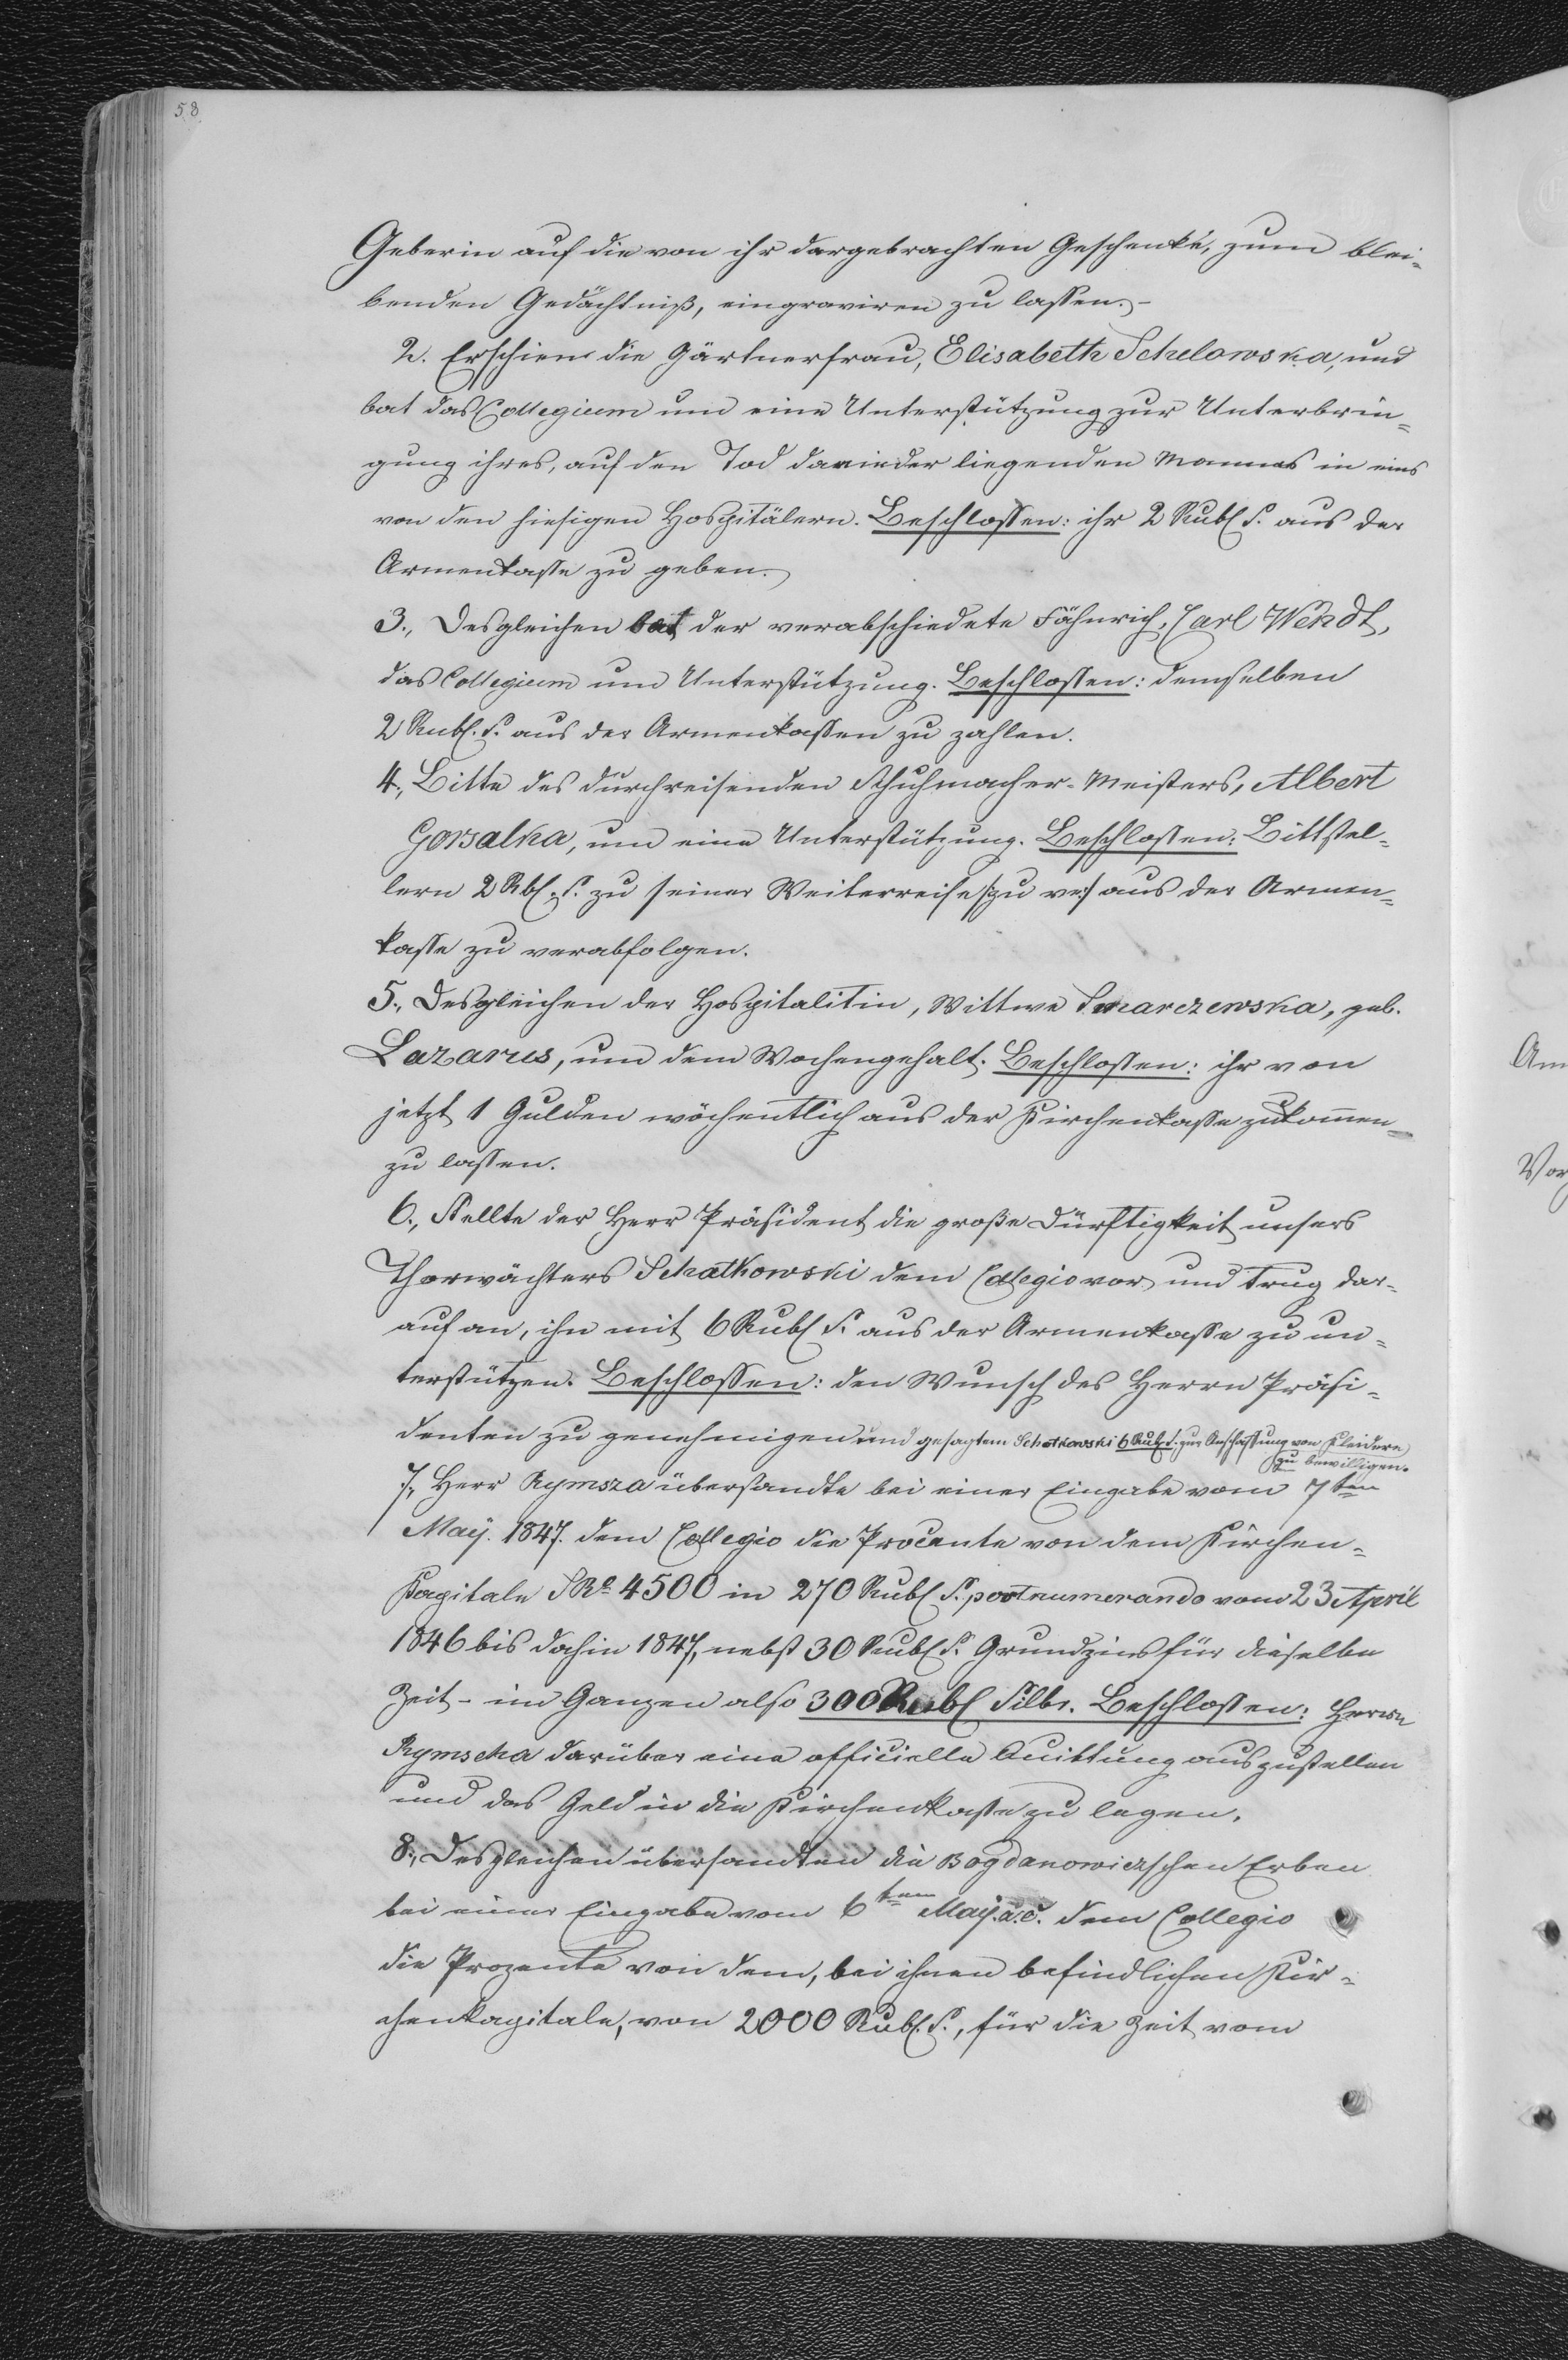 58
Geberin auf die von ihr dargebrachten Geschenke, zum blei-
benden Gedächtniß, eingraviren zu lassen. -
2. Erschien die Gärtnerfrau, Elisabeth Schelowska, und
bat das Collegium um eine Unterstützung zur Unterbrin=
gung ihres, auf den Tod darnieder liegenden Mannes in eins
von den hiesigen Hospitälern. Beschlossen: ihr 2 Rubl S. aus der
Armenkasse zu geben.
3., Desgleichen bat der verabschiedete Fähnrich, Carl Wendt,
das Collegium um Unterstützung. Beschlossen: demselben
2 Rubl. S. aus der Armenkassen zu zahlen.
4., Bitte des durchreisenden Schuhmacher-Meisters, Albert
Gorsalka, um eine Unterstützung. Beschlossen: Bittstel=
lern 2 Rbl. S. zu seiner Weiterreise /:zu ver:/ aus der Armen=
kasse zu verabfolgen.
5., Desgleichen der Hospitalitin, Wittwe Snarczewska, geb.
Lazarus, um dem Wochengehalt. Beschlossen: ihr von
jetzt 1 Gulden wöchentlich aus der Kirchenkasse zukommen
zu lassen.
6., Stellte der Herr Präsident die große Dürftigkeit unsers
Thorwächters Schatkowski dem Collegio vor, und trug dar-
auf an, ihn mit 6 Rubl S. aus der Armenkasse zu un=
terstützen. Beschlossen: den Wunsch des Herrn Präsi=
denten zu genehmigen und gesagtem Schatkowski 6 Rubl S. zur Anschaffung von Kleidern
zu bewilligen.
7., Herr Rymsza übersandte bei einer Eingabe vom 7ten
Maÿ. 1847. dem Collegio die Procente von dem Kirchen=
Kapitale SRo 4500 in 270 Rubl S. postnumerando vom 23 April
1846 bis dahin 1847, nebst 30 Rubl S. Grundzins für dieselbe
Zeit - im Ganzen also 300 Rubl Silbr. Beschlossen: Herrn
Rymscha darüber eine officielle Quittung auszustellen
und das Geld in die Kirchenkasse zu legen.
8., Desgleichen übersandten die Bogdanowiczschen Erben
bei einer Eingabe vom 6ten Maÿ. a. c. dem Collegio
die Prozente von dem, bei ihnen befindlichen Kir=
chenkapitale, von 2000 Rubl. S., für die Zeit vom